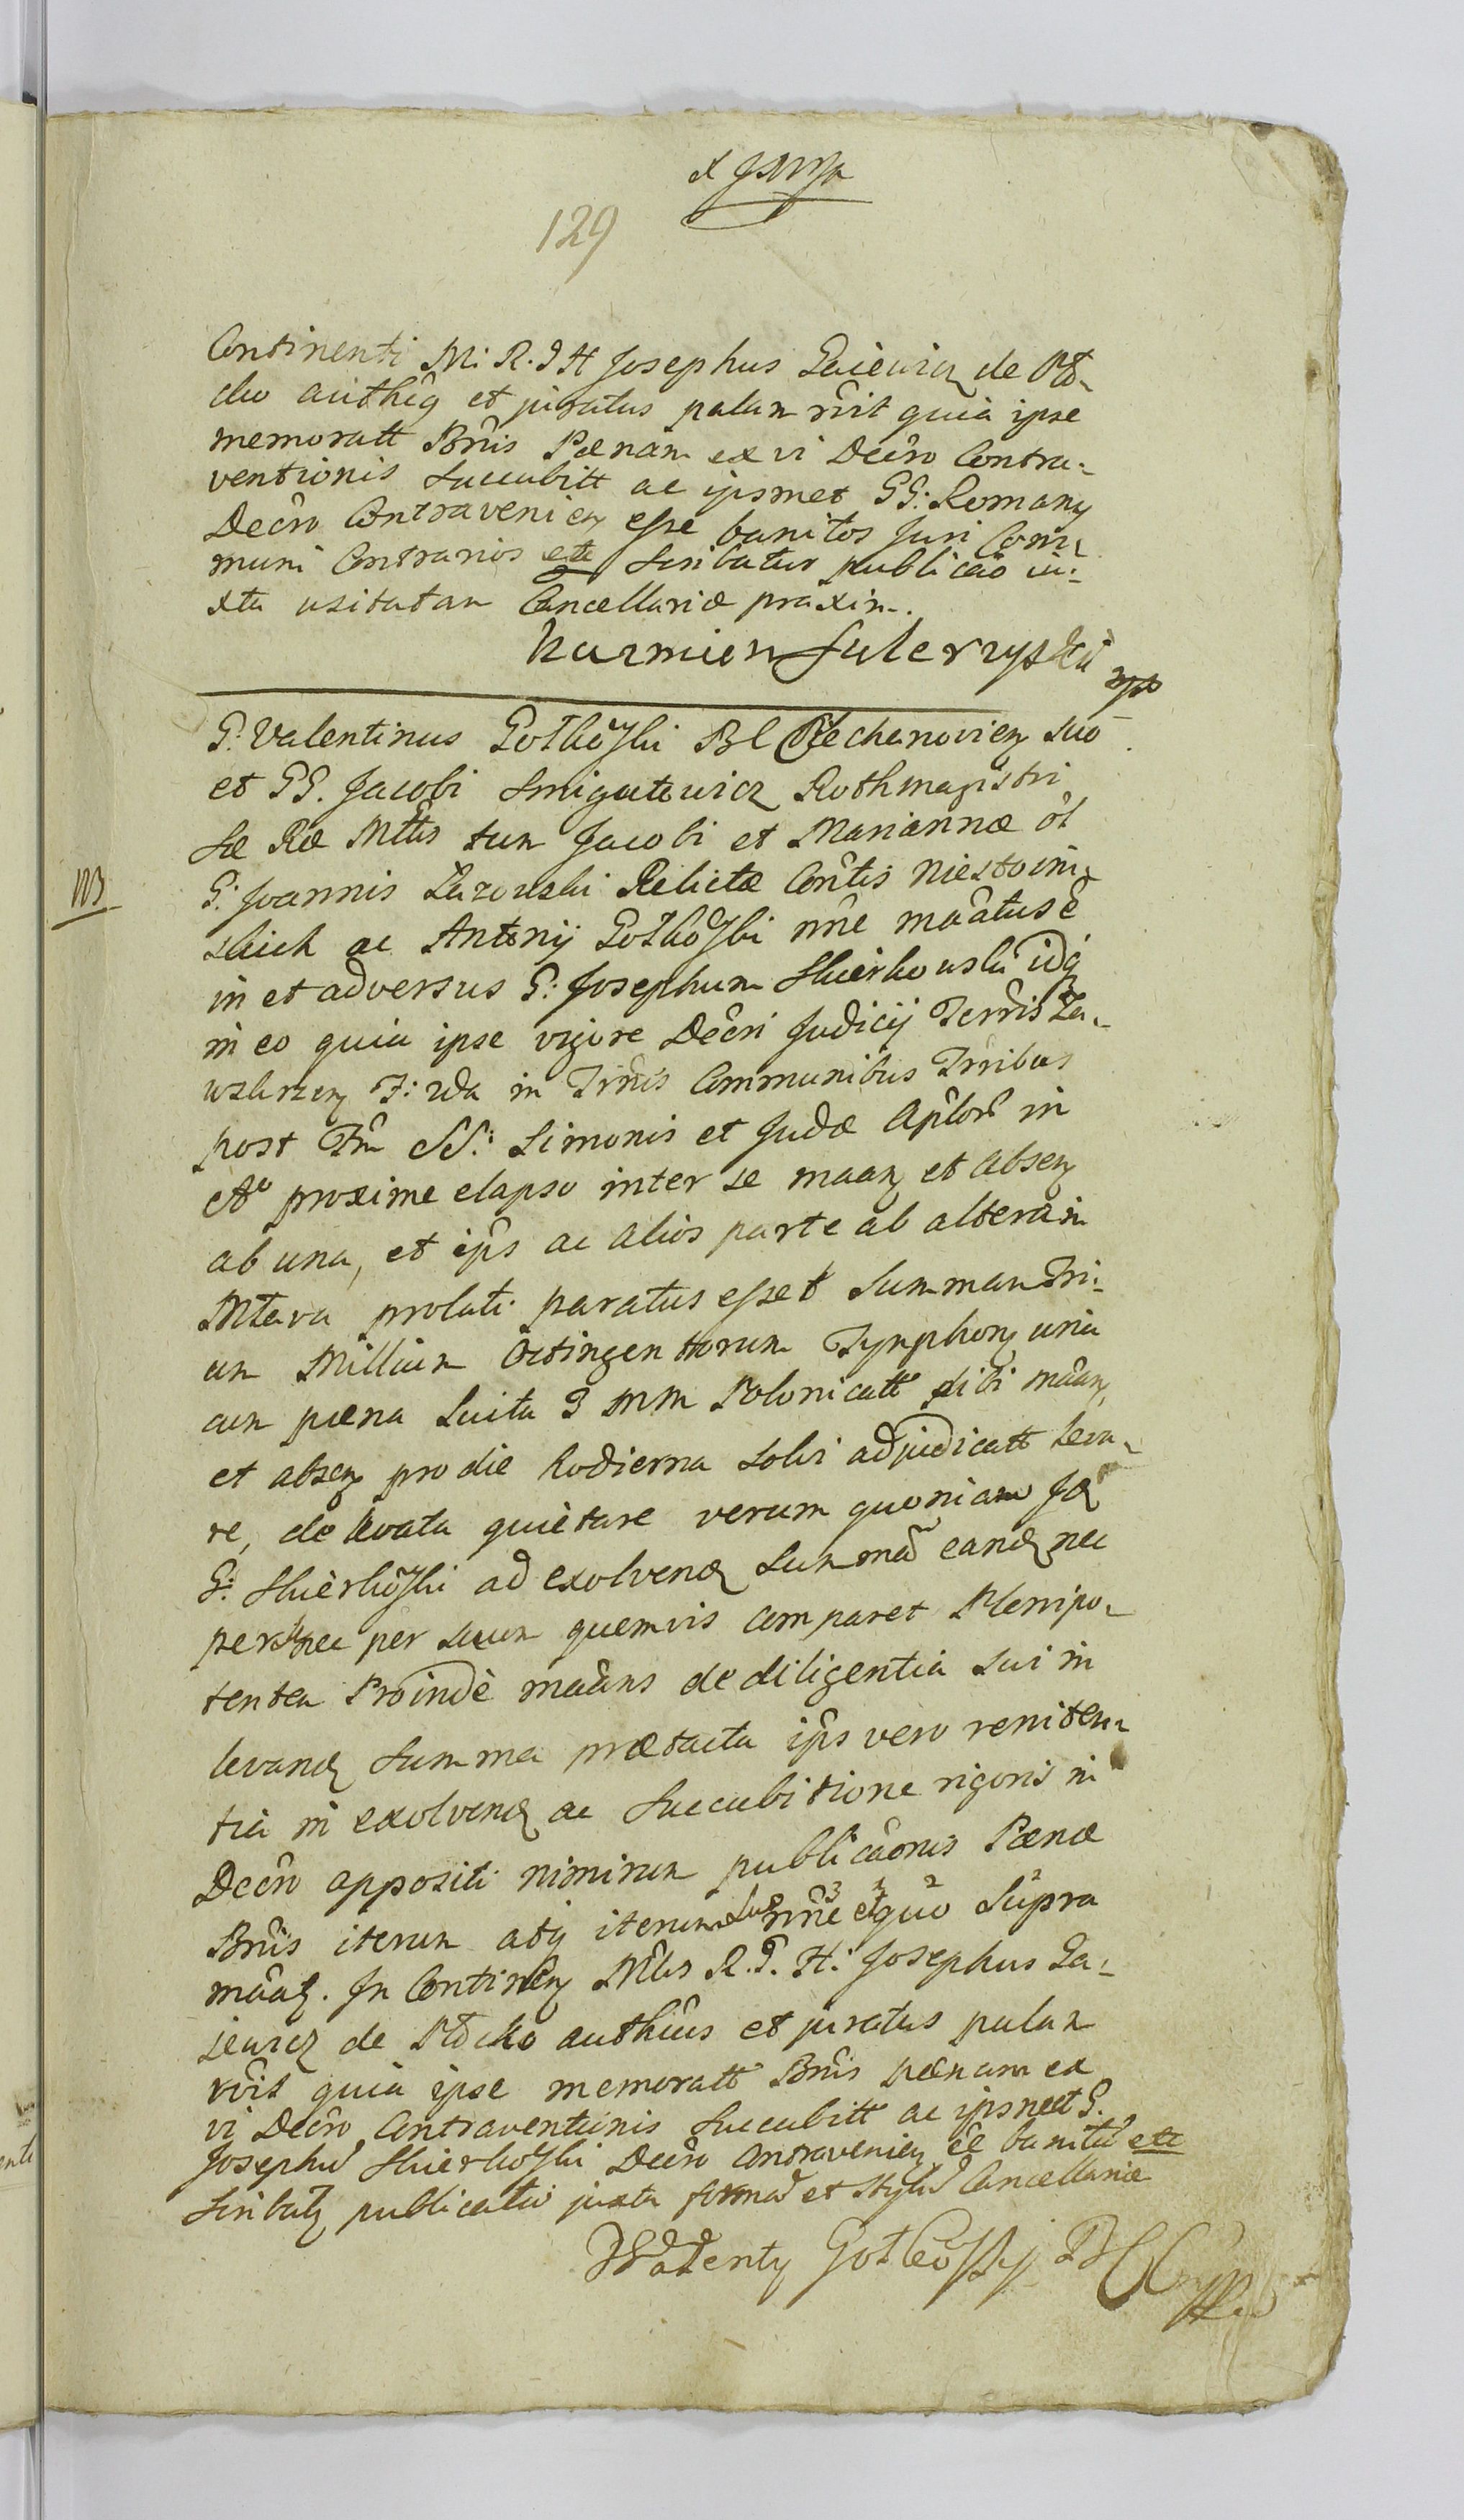 129
Continenti M: R. G H Josephus Zaiewicz de Pło-
cko authēq et juratus palam rūit quia ipse
memoratt Bnīs Pœnam ex vi Decīo Contra-
ventionis Succubitt ac ipsmet GG: Romany
Decīo Contraveniēn esse banitos Juri Com-
muni Contrarios etc Scribatur publicāo iu-
xta usitatam Cancellariæ praxim.
Kazmierz Sulerzyski mp
G: Valentinus Gotkôwski B C Ciechanovien suō
et GG. Jacobi Smigutowicz Rothmagistri
Sæ Ræ Mttis tum Jacobi et Mariannæ ōl
NB
G: Joannis Zazowski Relictæ Contis Niestoim-
skich ac Antonij Gotkôwski nīne maâtus ē
in et adversus G: Josephum Skierkowski idq
in eo quia ipse vigore Decīi Judicij Terrīs Za-
wskrzen F: 2da in Trīis Communibus Trribus
post Fm SS: Simonis et Judæ Aplōr in
Ao proxime elapso inter se maan et absen
ab una, et ip̄s ac alios parte ab altera in
Mlava prolati paratus esset Summam Tri-
um Millium Octingentorum Tymphon una
cum pœna luita 3 MM Polonicatt sibi māan,
et absen pro die hodierna solvi adjudicatt leva-
re, de levata quietare verum quoniam Id
G: Skierkôwski ad exolvend Summā eand nec
per se nec per suum quemvis comparet Plenipo-
tentem Proinde maâns de diligentia sui in
levand Summa prætacta ip̄s vero reniten-
tia in exolvend ac Succubitione rigoris in
Decīo appositi nimirum publicāonis Pœnæ
Bnīs iterum atq iterum suo nīne et quo Supra
māat. In Continen Mlis R. G. H: Josephus Za-
jewicz de Płocko authēus et juratus palam
rūit quia ipse memoratt Bnīs pœnam ex
vi Decīo Contraventionis Succubitt ac ipsmet G.
Josephū Skierkôwski Decīo Contraveniēn ēē banitū etc
Scribatz publicatio juxta formā et stylū Cancellariæ
Walenty Gotkôwski B C C mp